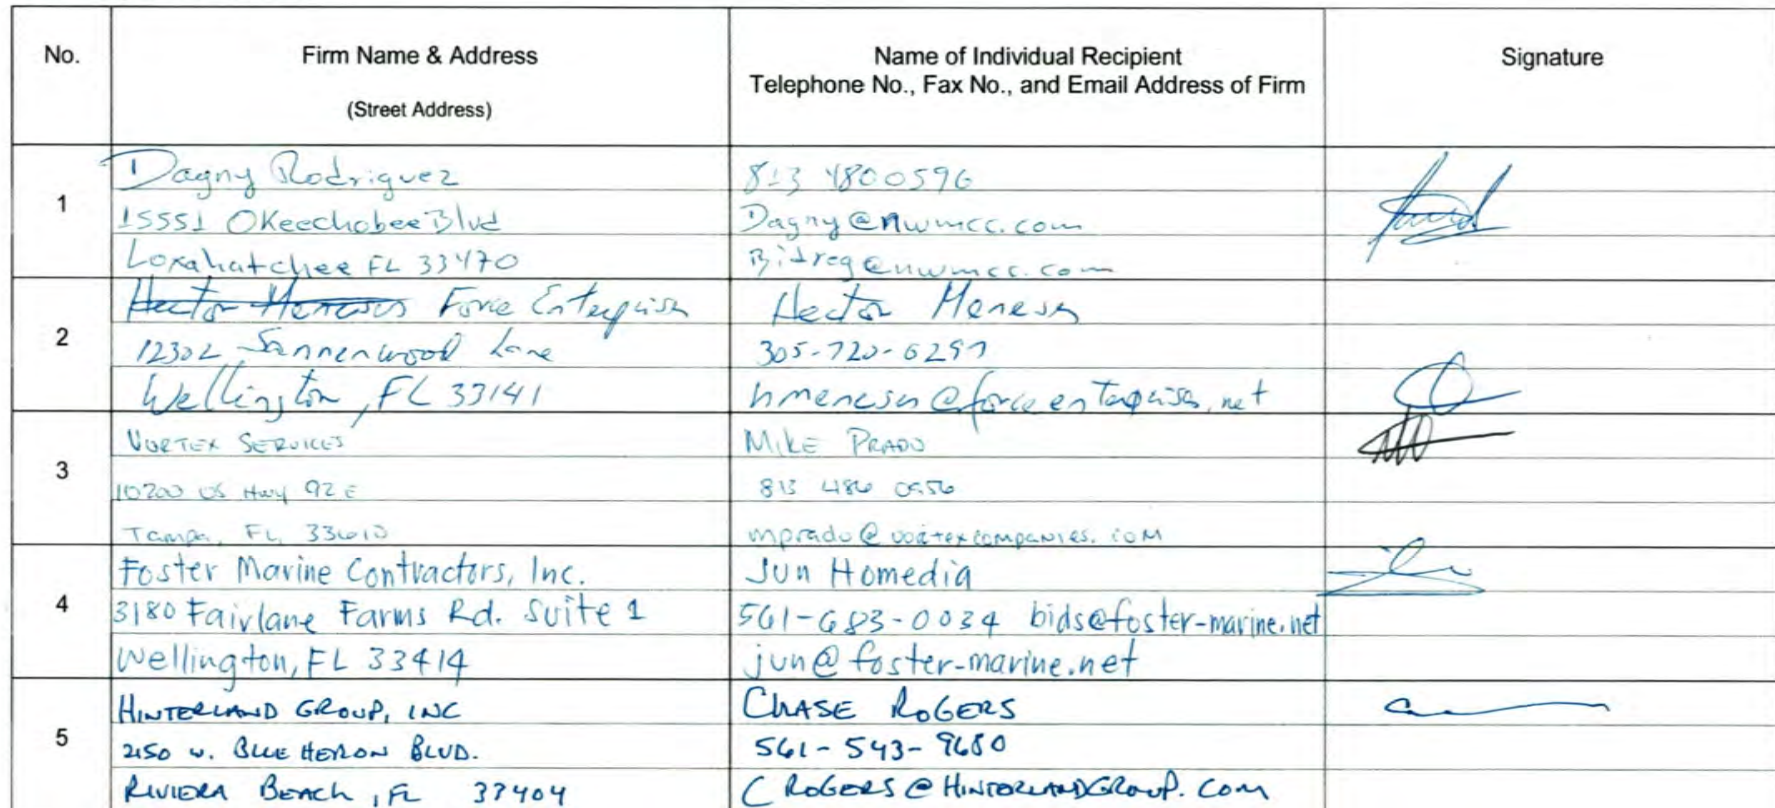 No.
Firm Name & Address
(Street Address)
Name of Individual Recipient
Telephone No., Fax No., and Email Address of Firm
Signature
1
Dagny Rodriguez
15551 Okeechobee Blvd
Loxahatchee FL 33470
813 4800596
Dagny@nwmcc.com
Bidreg@nwmcc.com
2
Force Enterprises
Wellington, FL 33141
Hector
3
VORTEX SERVICES
10200 US Hwy 92 E
Tampa, FL, 33610
MIKE PRADO
813 486 0956
mprado@vortexcompanies.com
4
Foster Marine Contractors, Inc.
3180 Fairlane Farms Rd. Suite 1
Wellington, FL 33414
Jun Homedia
561-683-0034 bids@foster-marine.net
jun@foster-marine.net
5
HINTERLAND GROUP, INC
2150 W. BLUE HERON BLVD.
RIVIERA BEACH, FL 33404
CHASE ROGERS
561-543-9680
CROGERS@HINTERLANDGROUP.COM